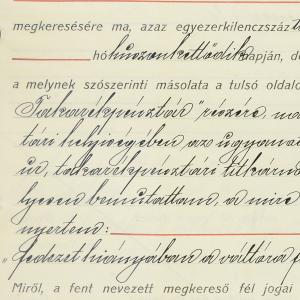 megkeresésére ma, azaz egyezerkilenczszáz
hó huszonkettedik napján, d
a melynek szószerinti másolata a tulsó oldalo
Takarékpénztár" részére, ma
tári helyiségében az ugyanac
úr, takarékpénztári titkárna
lyesen bemutattam, a mire
nyertem:
„fedezet hiányjában a váltóra f
Miről, a fent nevezett megkereső fél jogai